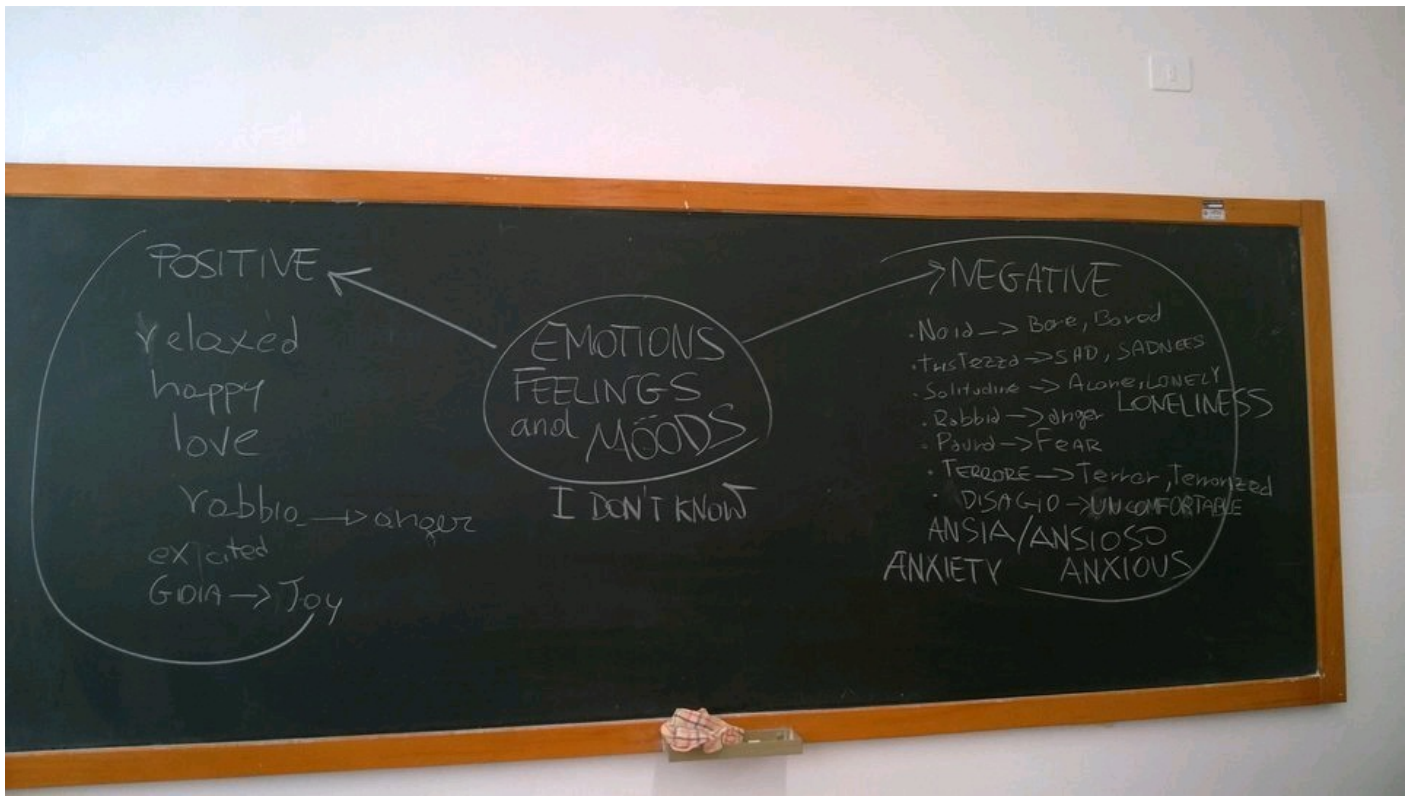 POSITIVE
relaxed
happy
love
rabbia → anger
exicited
GIOIA → Joy
EMOTIONS
FEELINGS
and MOODS
I DON'T KNOW
NEGATIVE
· Noia → Bore, Bored
· tristezza → SAD, SADNEES
· Solitudine → Alone, LONELY
LONELINESS
· Rabbia → anger
· Paura → FEAR
· TERRORE → Terror, Terrorized
· DISAGIO → UNCOMFORTABLE
ANSIA/ANSIOSO
ANXIETY ANXIOUS